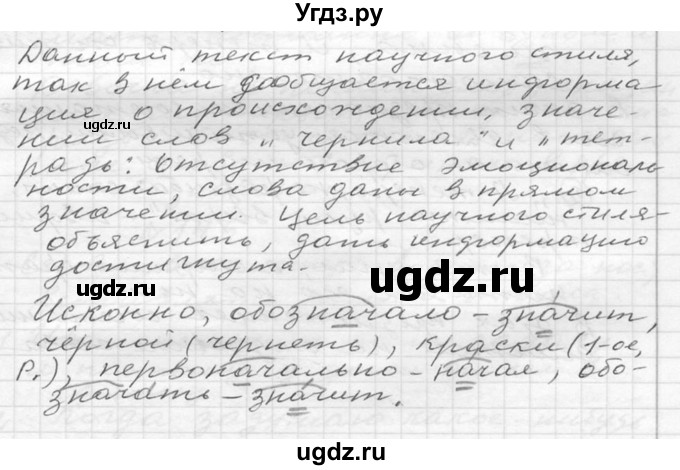 Угдз.ру
Данный текст научного стиля,
так в нём сообщается информа
ция о происхождении, значе-
нии слов „ чернила " и „ тет-
радь: Отсутствие эмоциональ
ности, слова даны в прямом
значении. Цель научного стиля-
объяснить, дать информацию
достигнута.
ugdz.ru
ugdz.ru
ugdz.ru
ugdz.ru
Исконно, обозначало - значит,
чёрной (чернеть), краски (1-ое,
Р.), первоначально - начал, обо-
значать - значит.
ugdz.ru
ugdz.ru